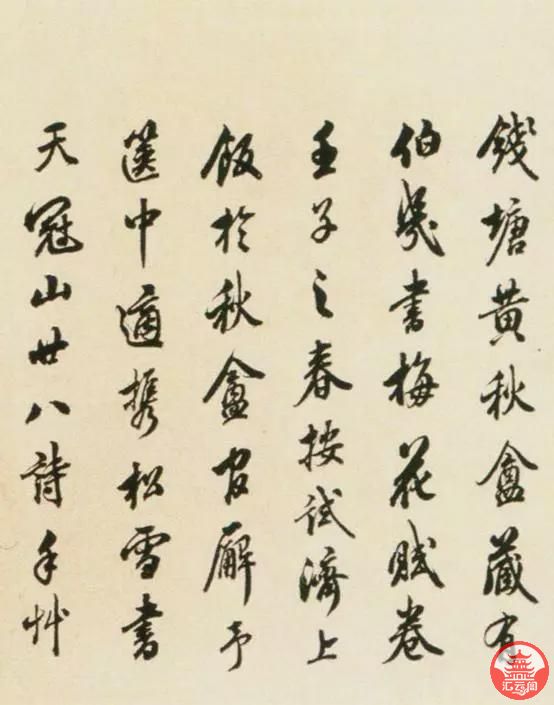 錢塘黃秋盦藏有
伯幾書梅花賦卷
壬子之春按試濟上
飯於秋盦官廨予
篋中適攜松雪書
天冠山廿八詩手艸
汇云阁